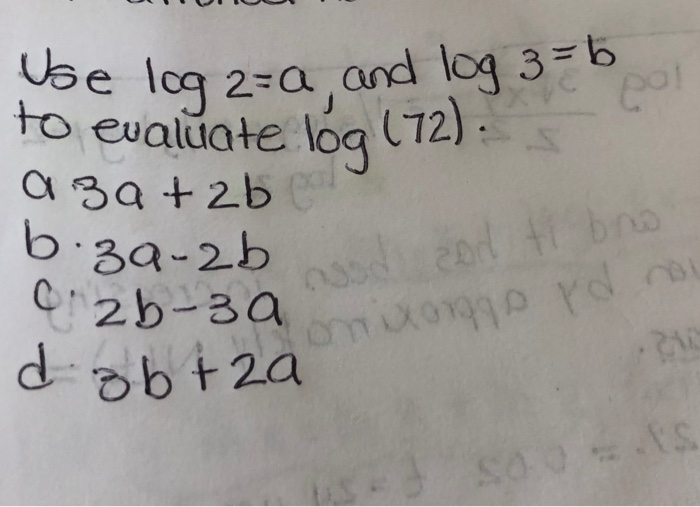 Use log 2=a, and log 3=b
to evaluate log (72).
a 3a + 2b
b. 3a-2b
c. 2b-3a
d. 3b+2a